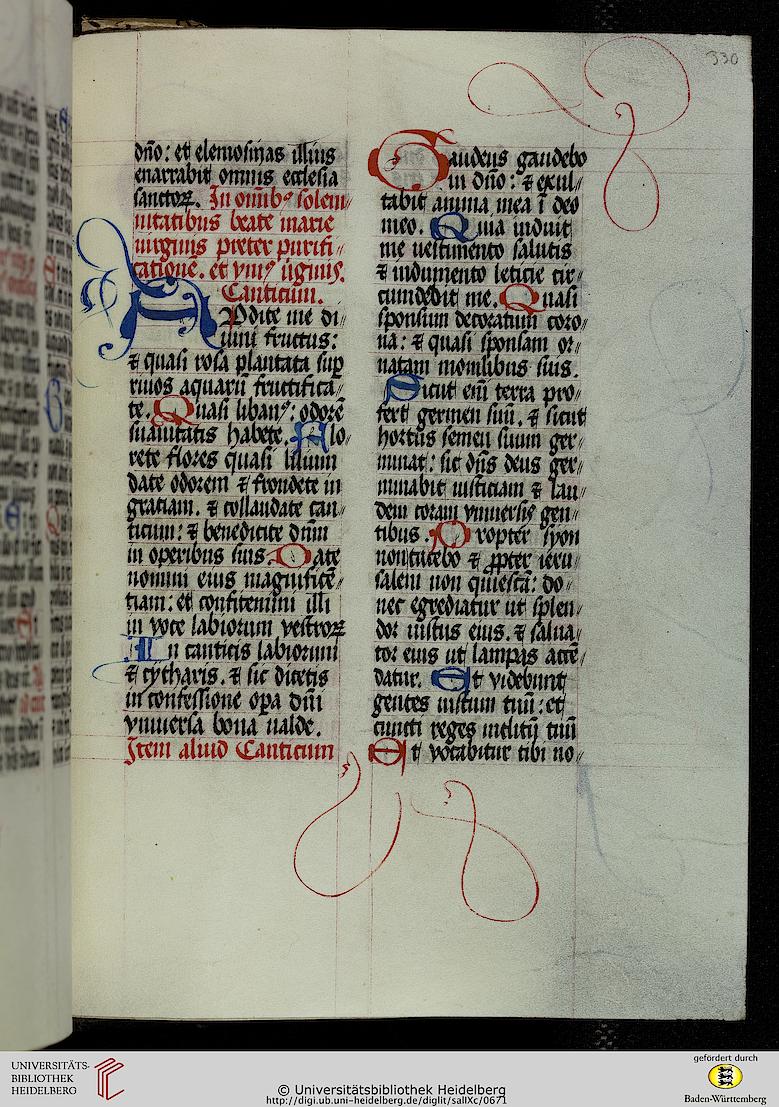 330
dño: et elemosinas illius
enarrabit omnis ecclesia
sanctoꝝ. In om̄ibꝰ solem//
nitatibus beate marie
uirginis preter purifi//
catione. et vniꝰ ṽginis.
Canticum.
AVdite me di//
uini fructus:
⁊ quasi rosa plantata sup̄
riuos aquarū fructifica//
te. Quasi libanꝰ: odorē
suauitatis habete. Flo//
rete flores quasi lilium
date odorem ⁊ frondete in
gratiam. ⁊ collaudate can//
ticum: ⁊ benedicite dn̄m
in operibus suis. Date
nomini eius magnificē//
tiam: et confitemini illi
in voce labiorum vestroꝝ
In canticis labiorum
⁊ cytharis. ⁊ sic dicetis
in confessione oꝑa dn̄i
vniuersa bona ualde.
Item aliud Canticum
Gaudens gaudebo
in dn̄o: ⁊ exul//
tabit anima mea ī deo
meo. Quia induit
me uestimento salutis
⁊ indumento leticie cir//
cumdedit me. Quasi
sponsum decoratum coro//
na: ⁊ quasi sponsam or//
natam monilibus suis.
Sicut em̄ terra pro//
fert germen suū. ⁊ sicut
hortus semen suum ger//
minat: sic dn̄s deus ger//
minabit iusticiam ⁊ lau//
dem coram vniuersis gen//
tibus. Propter syon
non tacebo ⁊ ꝓpter ieru//
salem non quiescā: do//
nec egrediatur ut splen//
dor iustus eius. ⁊ salua//
tor eius ut lampas accē//
datur. Et videbunt
gentes iustum tuū: et
cuncti reges inclitū tuū
Et vocabitur tibi no//
UNIVERSITÄTS-
BIBLIOTHEK
HEIDELBERG
© Universitätsbibliothek Heidelberg
http://digi.ub.uni-heidelberg.de/diglit/salIXc/0671
gefördert durch
Baden-Württemberg